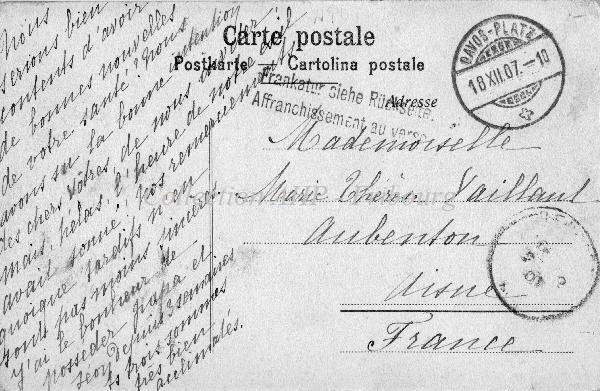 Nous
serions bien
contents d'avoir
de bonnes nouvelles
de votre santé! Nous
avons su la bonne intention
des chers vôtres de nous convier!
mais, hélas, l'heure de notre exil
avait sonné. Nos remerciements
quoique tardifs n'en
sont pas moins sincères
J'ai le bonheur de
posséder papa et
depuis 3 semaines
trois sommes
très bien
acclimatés.
Carte postale
Postkarte — Cartolina postale
Frankatur siehe Rückseite.
Affranchissement au verso
Adresse
DAVOS-PLATZ
18.XII.07.-10
Mademoiselle
Marie Thérèse Vaillant
Aubenton
Aisne
France
Collection